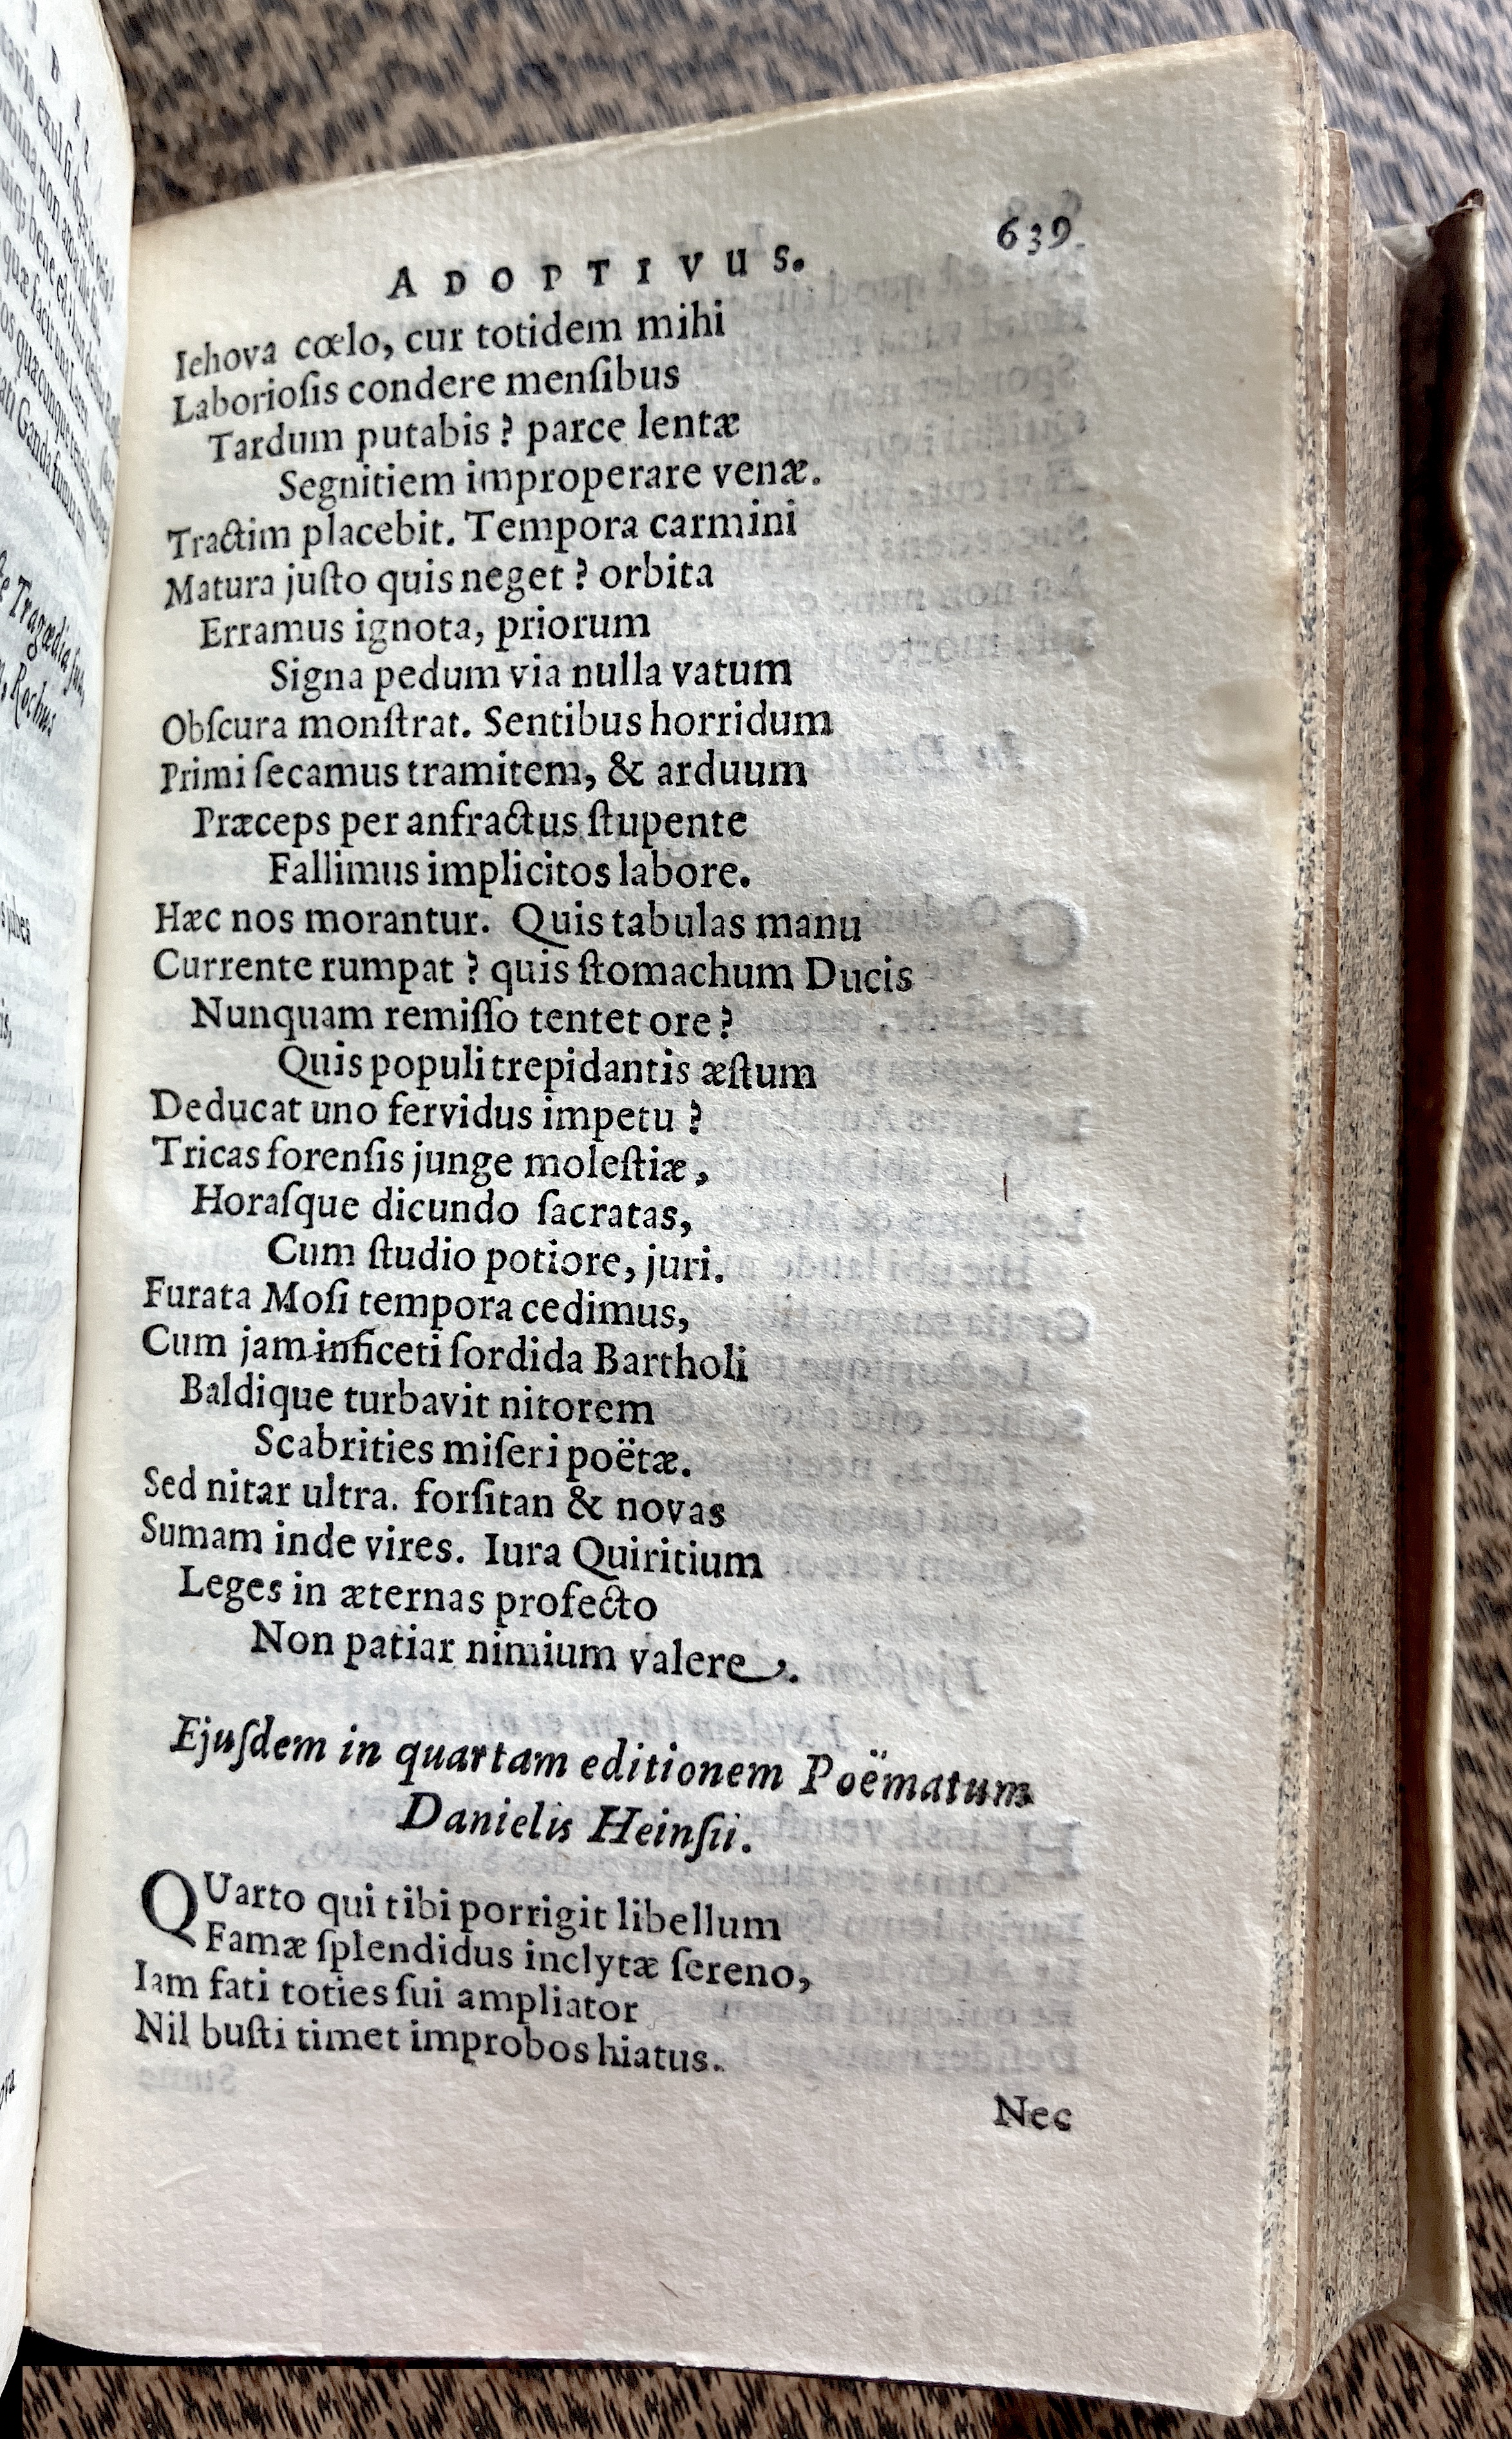 ADOPTIVUS. 639
Iehova cœlo, cur totidem mihi
Laborioſis condere menſibus
Tardum putabis? parce lentæ
Segnitiem improperare venæ.
Tractim placebit. Tempora carmini
Matura juſto quis neget? orbita
Erramus ignota, priorum
Signa pedum via nulla vatum
Obſcura monſtrat. Sentibus horridum
Primi ſecamus tramitem, & arduum
Præceps per anfractus ſtupente
Fallimus implicitos labore.
Hæc nos morantur. Quis tabulas manu
Currente rumpat? quis ſtomachum Ducis
Nunquam remiſſo tentet ore?
Quis populi trepidantis æſtum
Deducat uno fervidus impetu?
Tricas forenſis junge moleſtiæ,
Horaſque dicundo ſacratas,
Cum ſtudio potiore, juri.
Furata Moſi tempora cedimus,
Cum jam inficeti ſordida Bartholi
Baldique turbavit nitorem
Scabrities miſeri poëtæ.
Sed nitar ultra. forſitan & novas
Sumam inde vires. Iura Quiritium
Leges in æternas profecto
Non patiar nimium valere.
Ejuſdem in quartam editionem Poëmatum
Danielis Heinſii.
QUarto qui tibi porrigit libellum
Famæ ſplendidus inclytæ ſereno,
Iam fati toties ſui ampliator
Nil buſti timet improbos hiatus.
Nec